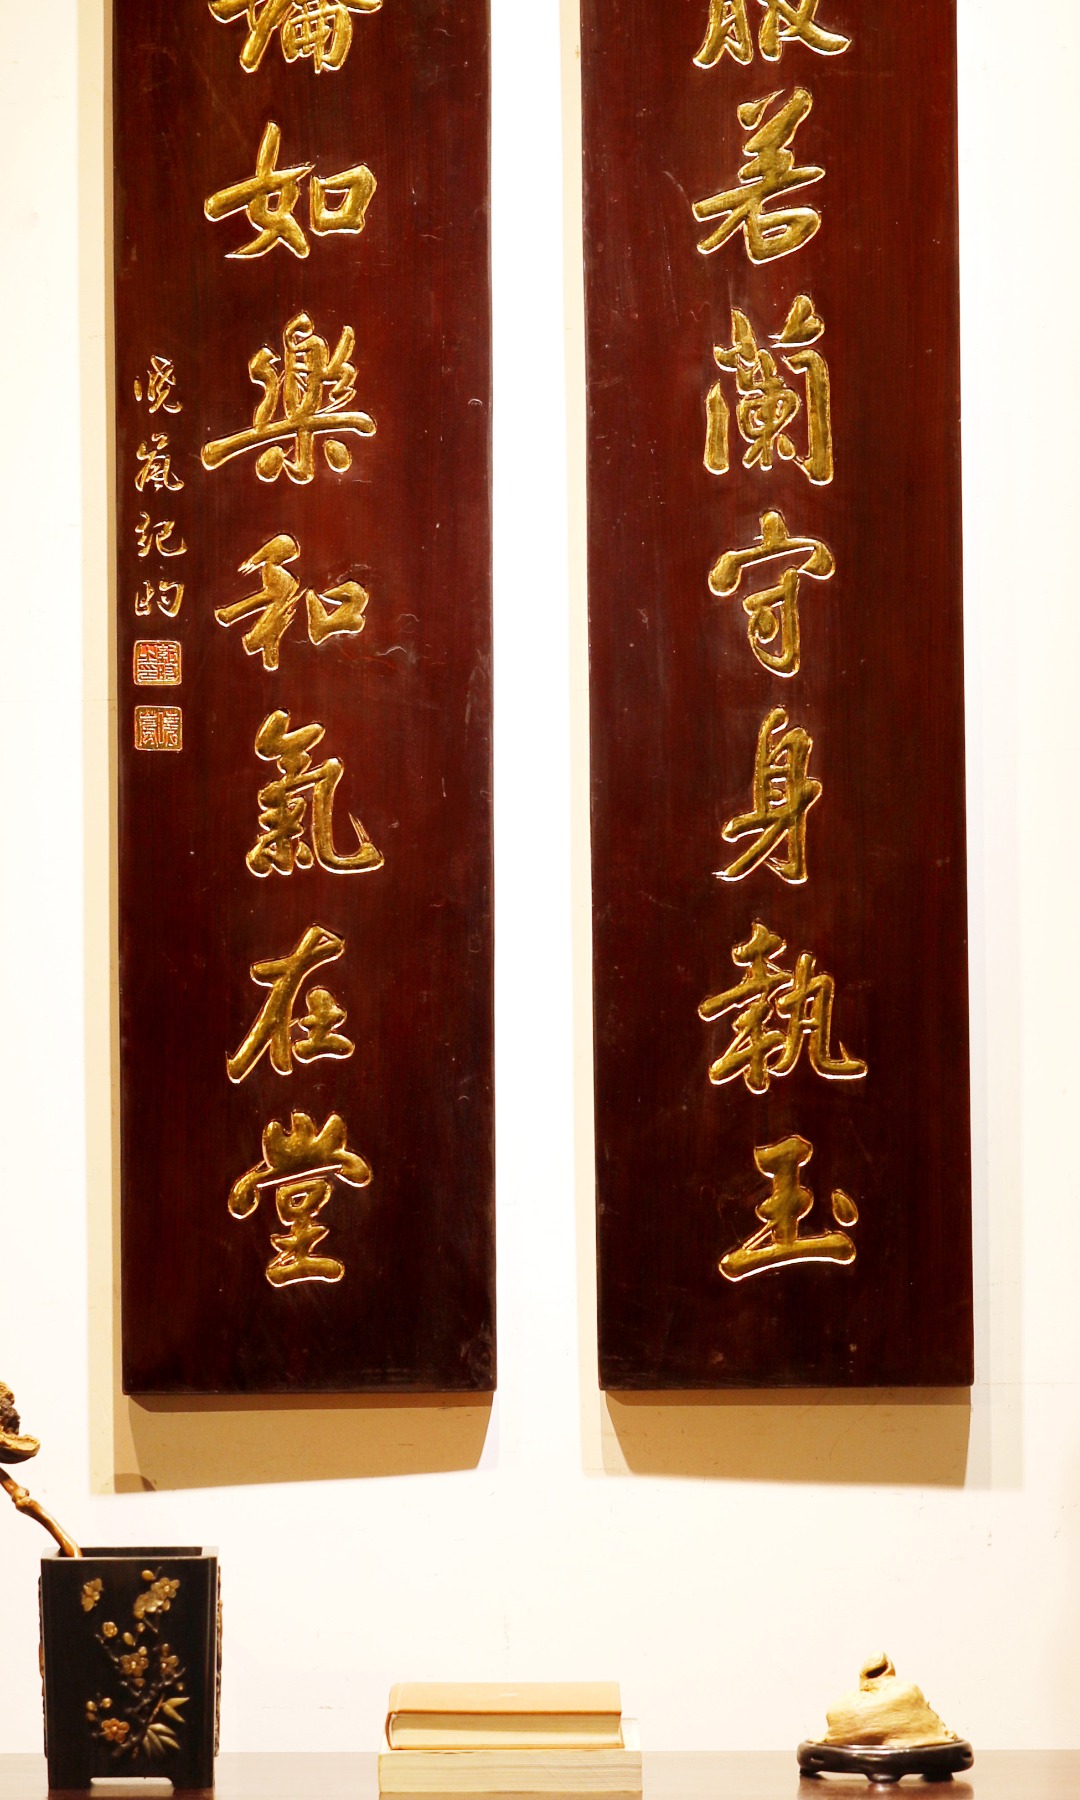 服若蘭守身執玉
如樂和氣在堂
曉嵐紀昀